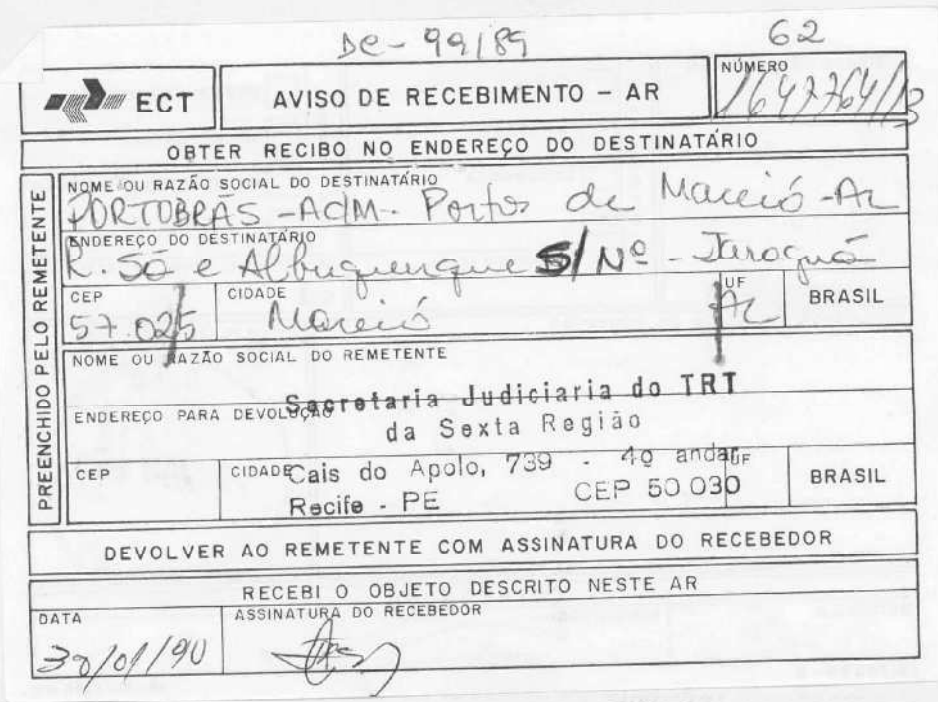 DC - 99/89 62
ECT AVISO DE RECEBIMENTO - AR NÚMERO 1647764/13
OBTER RECIBO NO ENDEREÇO DO DESTINATÁRIO
PREENCHIDO PELO REMETENTE
NOME OU RAZÃO SOCIAL DO DESTINATÁRIO
PORTOBRÁS - ADM. Portos de Maceió - AL
ENDEREÇO DO DESTINATÁRIO
R. Sá e Albuquerque S/Nº - Jaraguá
CEP CIDADE UF BRASIL
57.025 Maceió AL
NOME OU RAZÃO SOCIAL DO REMETENTE
Secretaria Judiciaria do TRT
ENDEREÇO PARA DEVOLUÇÃO
da Sexta Região
CEP CIDADE Cais do Apolo, 739 - 4º andar UF BRASIL
Recife - PE CEP 50 030
DEVOLVER AO REMETENTE COM ASSINATURA DO RECEBEDOR
RECEBI O OBJETO DESCRITO NESTE AR
DATA ASSINATURA DO RECEBEDOR
30/01/90